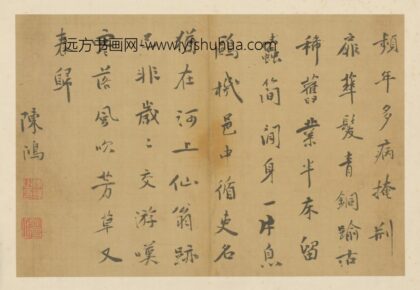 頻年多病掩荆
扉華髮青銅踰古
稀舊業半床留
蠹簡閒身一片息
鷗機邑中循吏名
猶在河上仙翁跡
已非歲〻交游嘆
零落風吹芳草又
春歸
陳鴻
远方书画网-www.yfshuhua.com